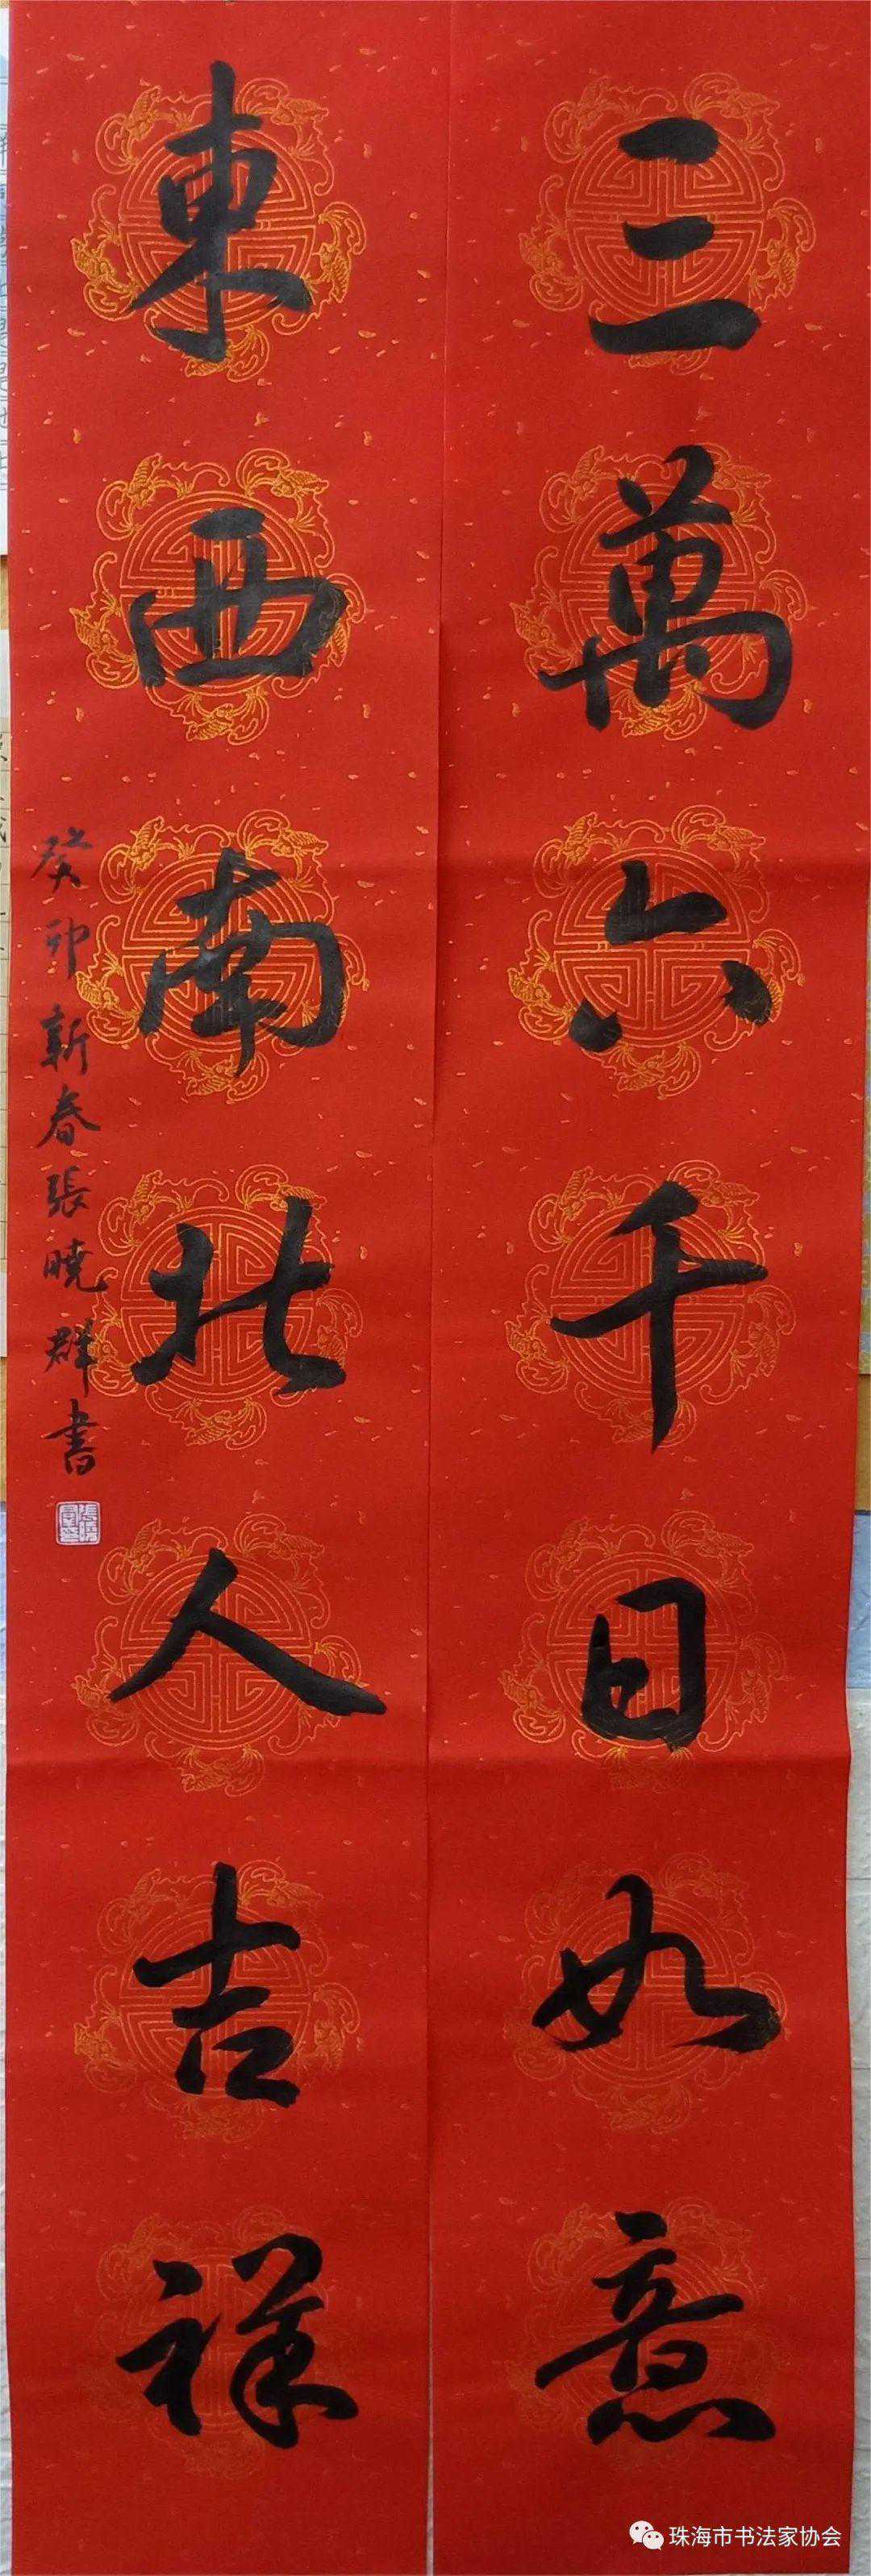 三萬六千日如意
東西南北人吉祥
癸卯新春張曉群書
珠海市书法家协会